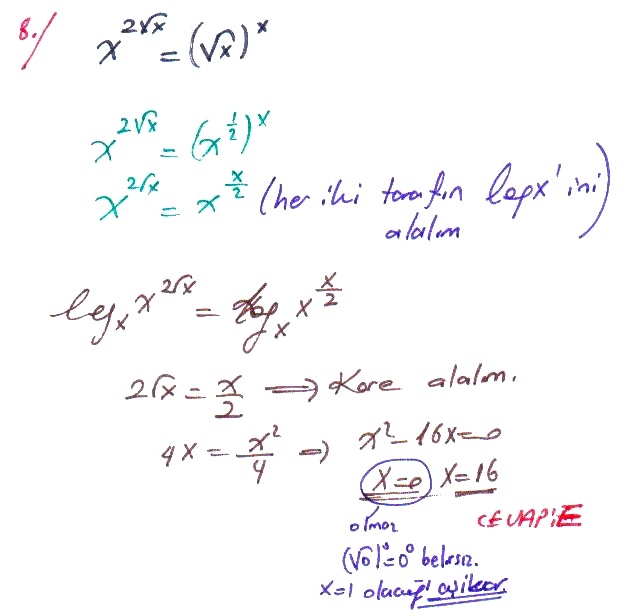 8./ x^{2√x} = (√x)^x
x^{2√x} = (x^{1/2})^x
x^{2√x} = x^{x/2} (her iki tarafın logx'ini
alalım)
log_x x^{2√x} = log_x x^{x/2}
2√x = x/2 ⟹ Kare alalım.
4x = x²/4 ⇒ x² - 16x = 0
x=0 x=16
olmaz CEVAP: E
(√0)⁰ = 0⁰ belirsiz.
x=1 olacağı açıktır.